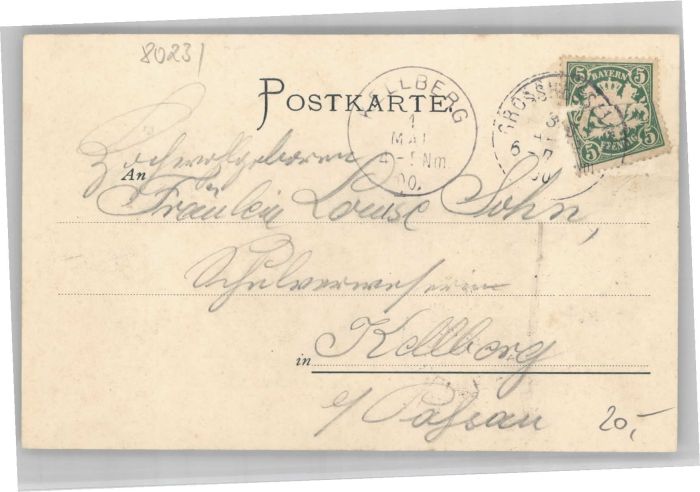 80231
POSTKARTE.
KELLBERG
1
MAI
4-5Nm.
00.
BAYERN
5 5
5 PFENNIG 5
Hochwolgeboren
An
Fräulein Louise Sohn,
Schulverweserin
in Kellberg
b/ Passau
20,-